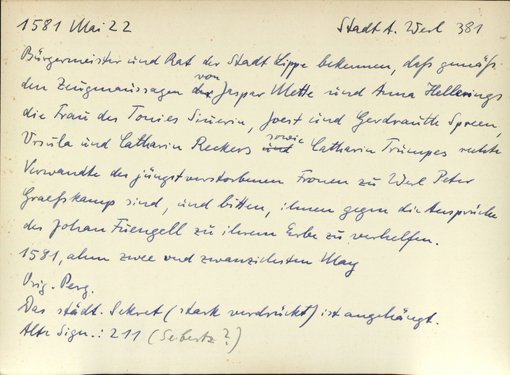 1581 Mai 22 Stadt A. Werl 381
Bürgermeister und Rat der Stadt Lippe bekennen, daß gemäß
den Zeugenaussagen von Jaspar Mette und Anna Hellerings
die Frau des Tonies Sinerin, Joest und Gerdrauth Spreen,
Ursula und Catharin Reckers sowie Catharin Trumpes rechte
Verwandte des jüngst verstorbenen Fronen zu Werl Peter
Graefskamp sind, und bitten, ihnen gegen die Ansprüche
des Johan Füengell zu ihrem Erbe zu verhelfen.
1581, ahm zwee und zwanzichsten May
Orig. Perg.
Das städt. Sekret (stark verdrückt) ist angehängt.
Alte Sign.: 211 (Seibertz?)